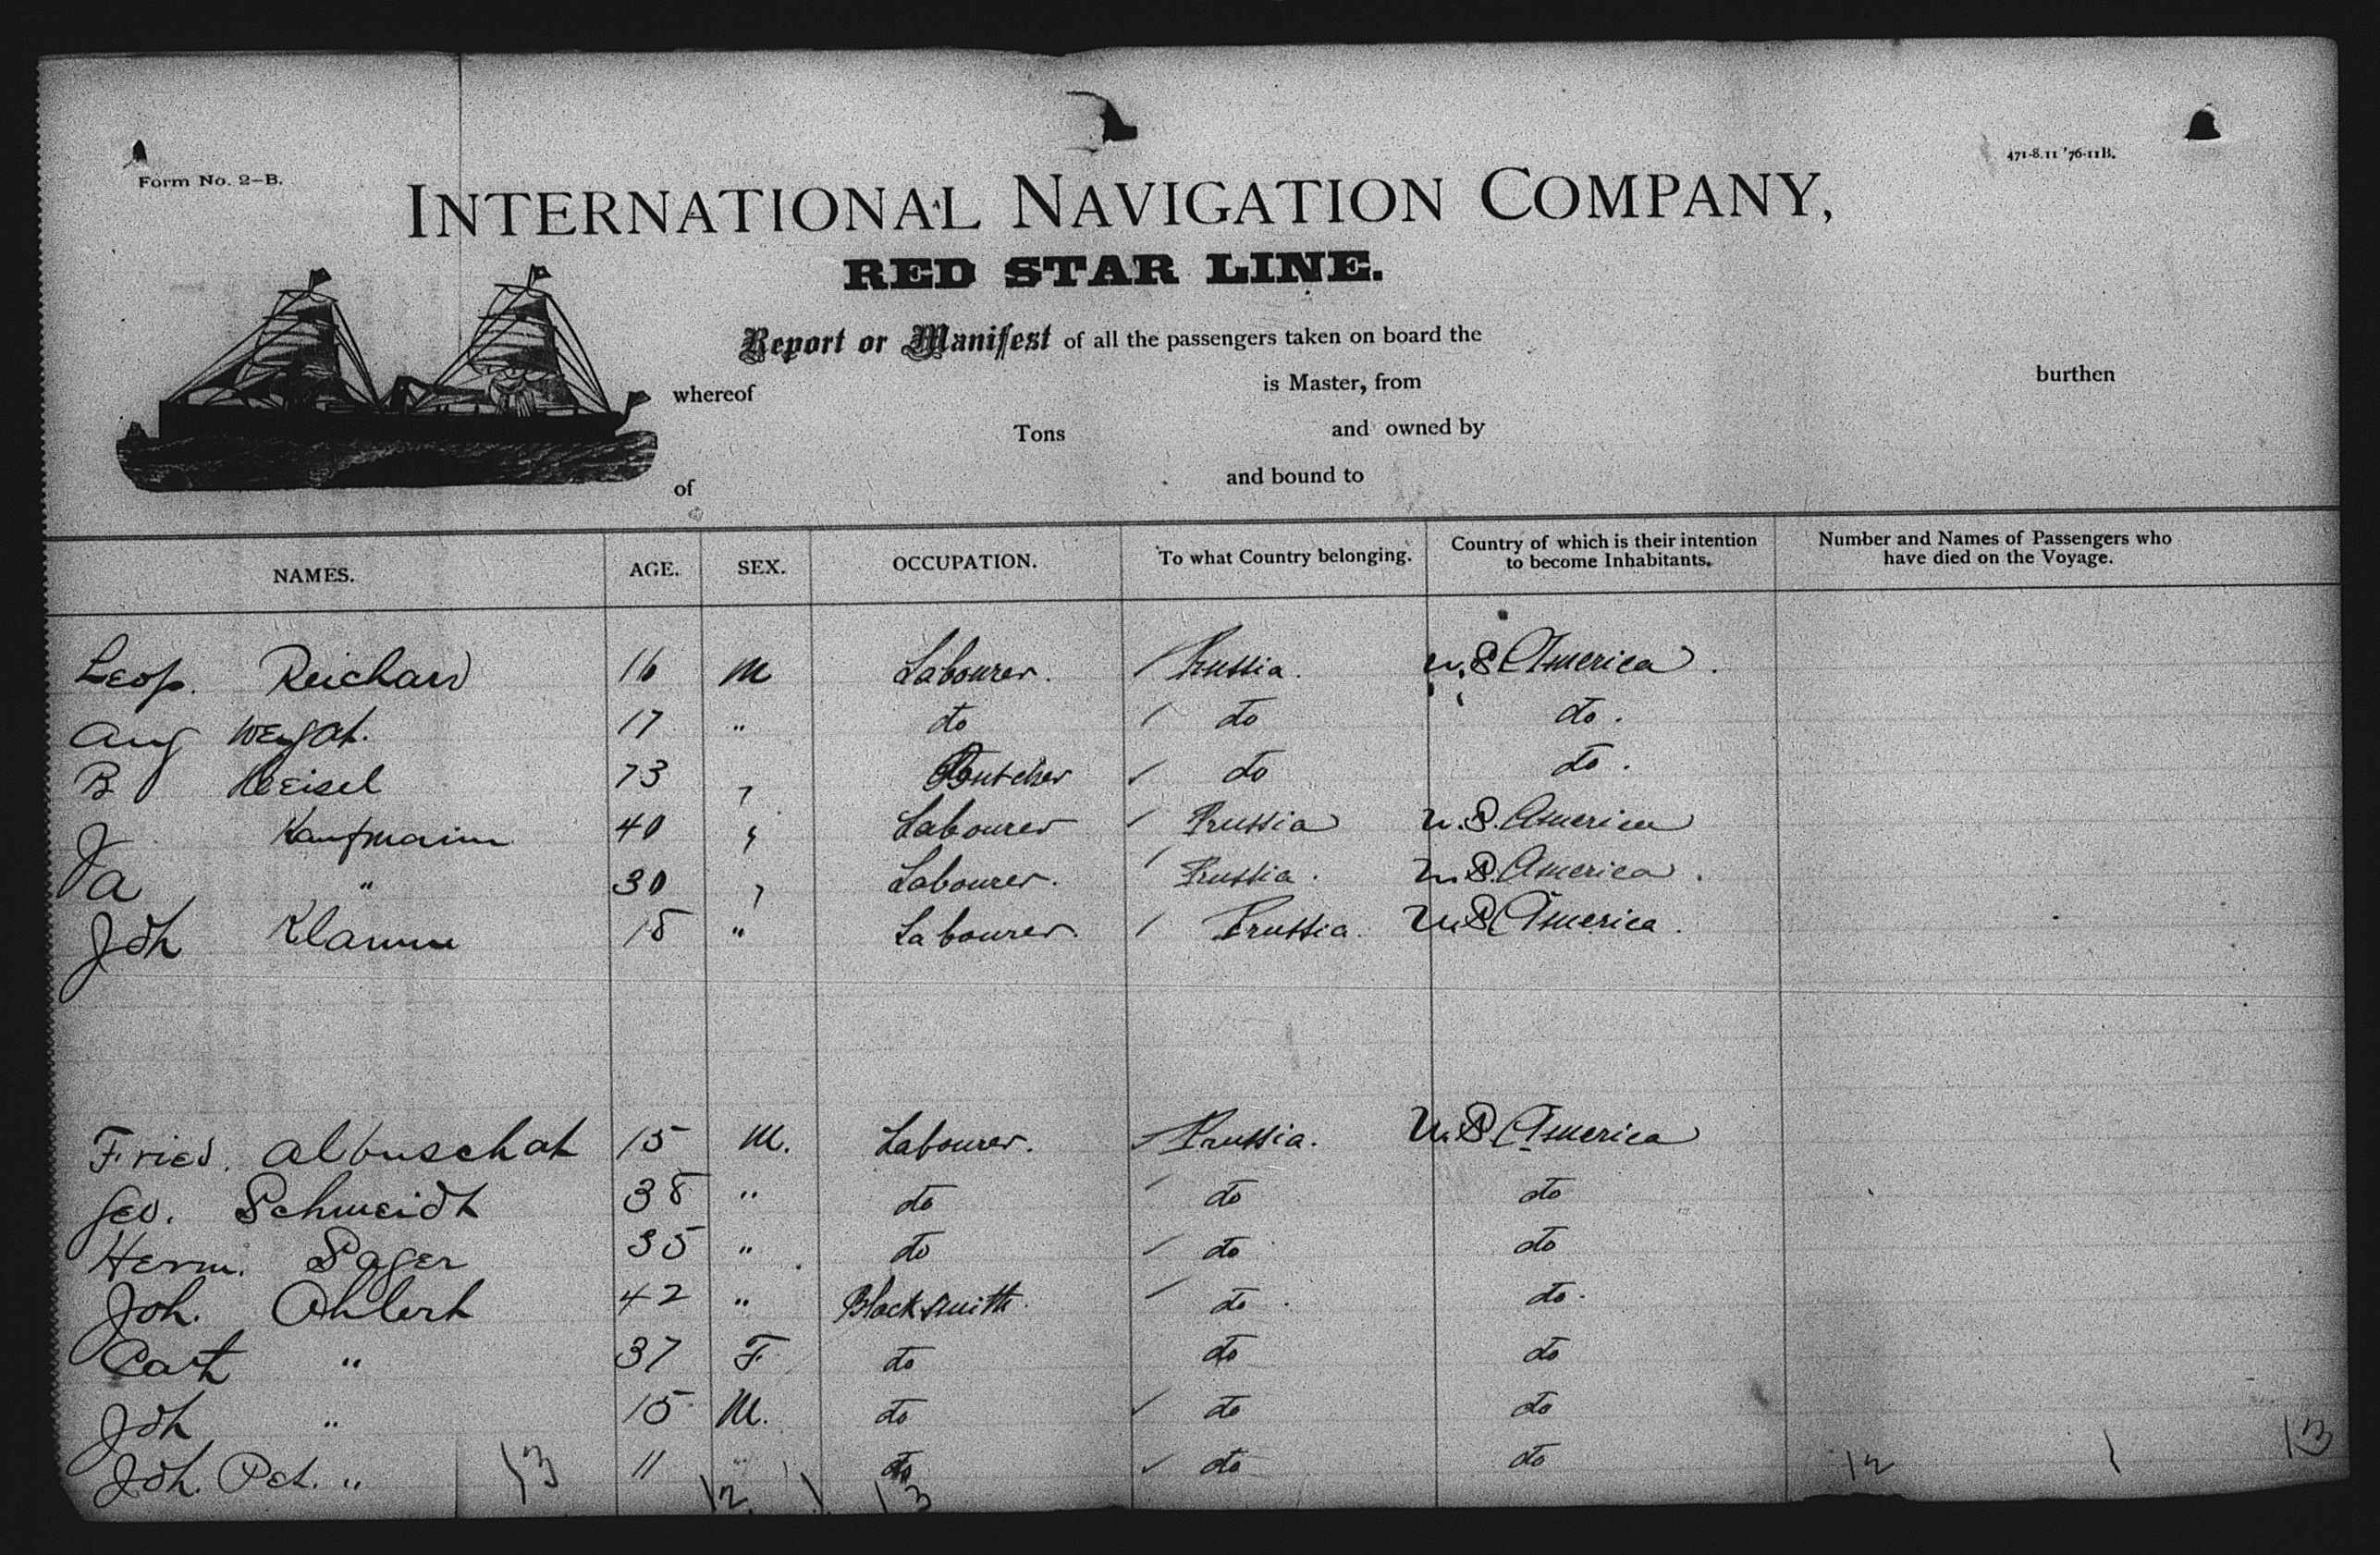 Form No. 2–B.
471-8.11 '76-11B.
INTERNATIONAL NAVIGATION COMPANY,
RED STAR LINE.
Report or Manifest of all the passengers taken on board the
whereof is Master, from burthen
Tons and owned by
of and bound to
NAMES. AGE. SEX. OCCUPATION. To what Country belonging. Country of which is their intention to become Inhabitants. Number and Names of Passengers who have died on the Voyage.
Leop. Reichard 16 M Labourer. Prussia. U.S America.
Aug 17 " do do do.
B 73 " Butcher do do.
J Kaufmann 40 " Labourer Prussia U.S. America
Ja " 30 " Labourer. Prussia. U.S. America.
Joh Klamm 18 " Labourer. Prussia. U.S America.
Fried. Albuschat 15 M. Labourer. Prussia. U.S America
Geo. Schmeidt 38 " do do do
Herm. Sager 35 " do do do
Joh. Ohlert 42 " Blacksmith. do. do.
Cath " 37 F do do do
Joh " 15 M. do do do
Joh. Pet. " 11 " do do do
13 12 1 13 12 1 13